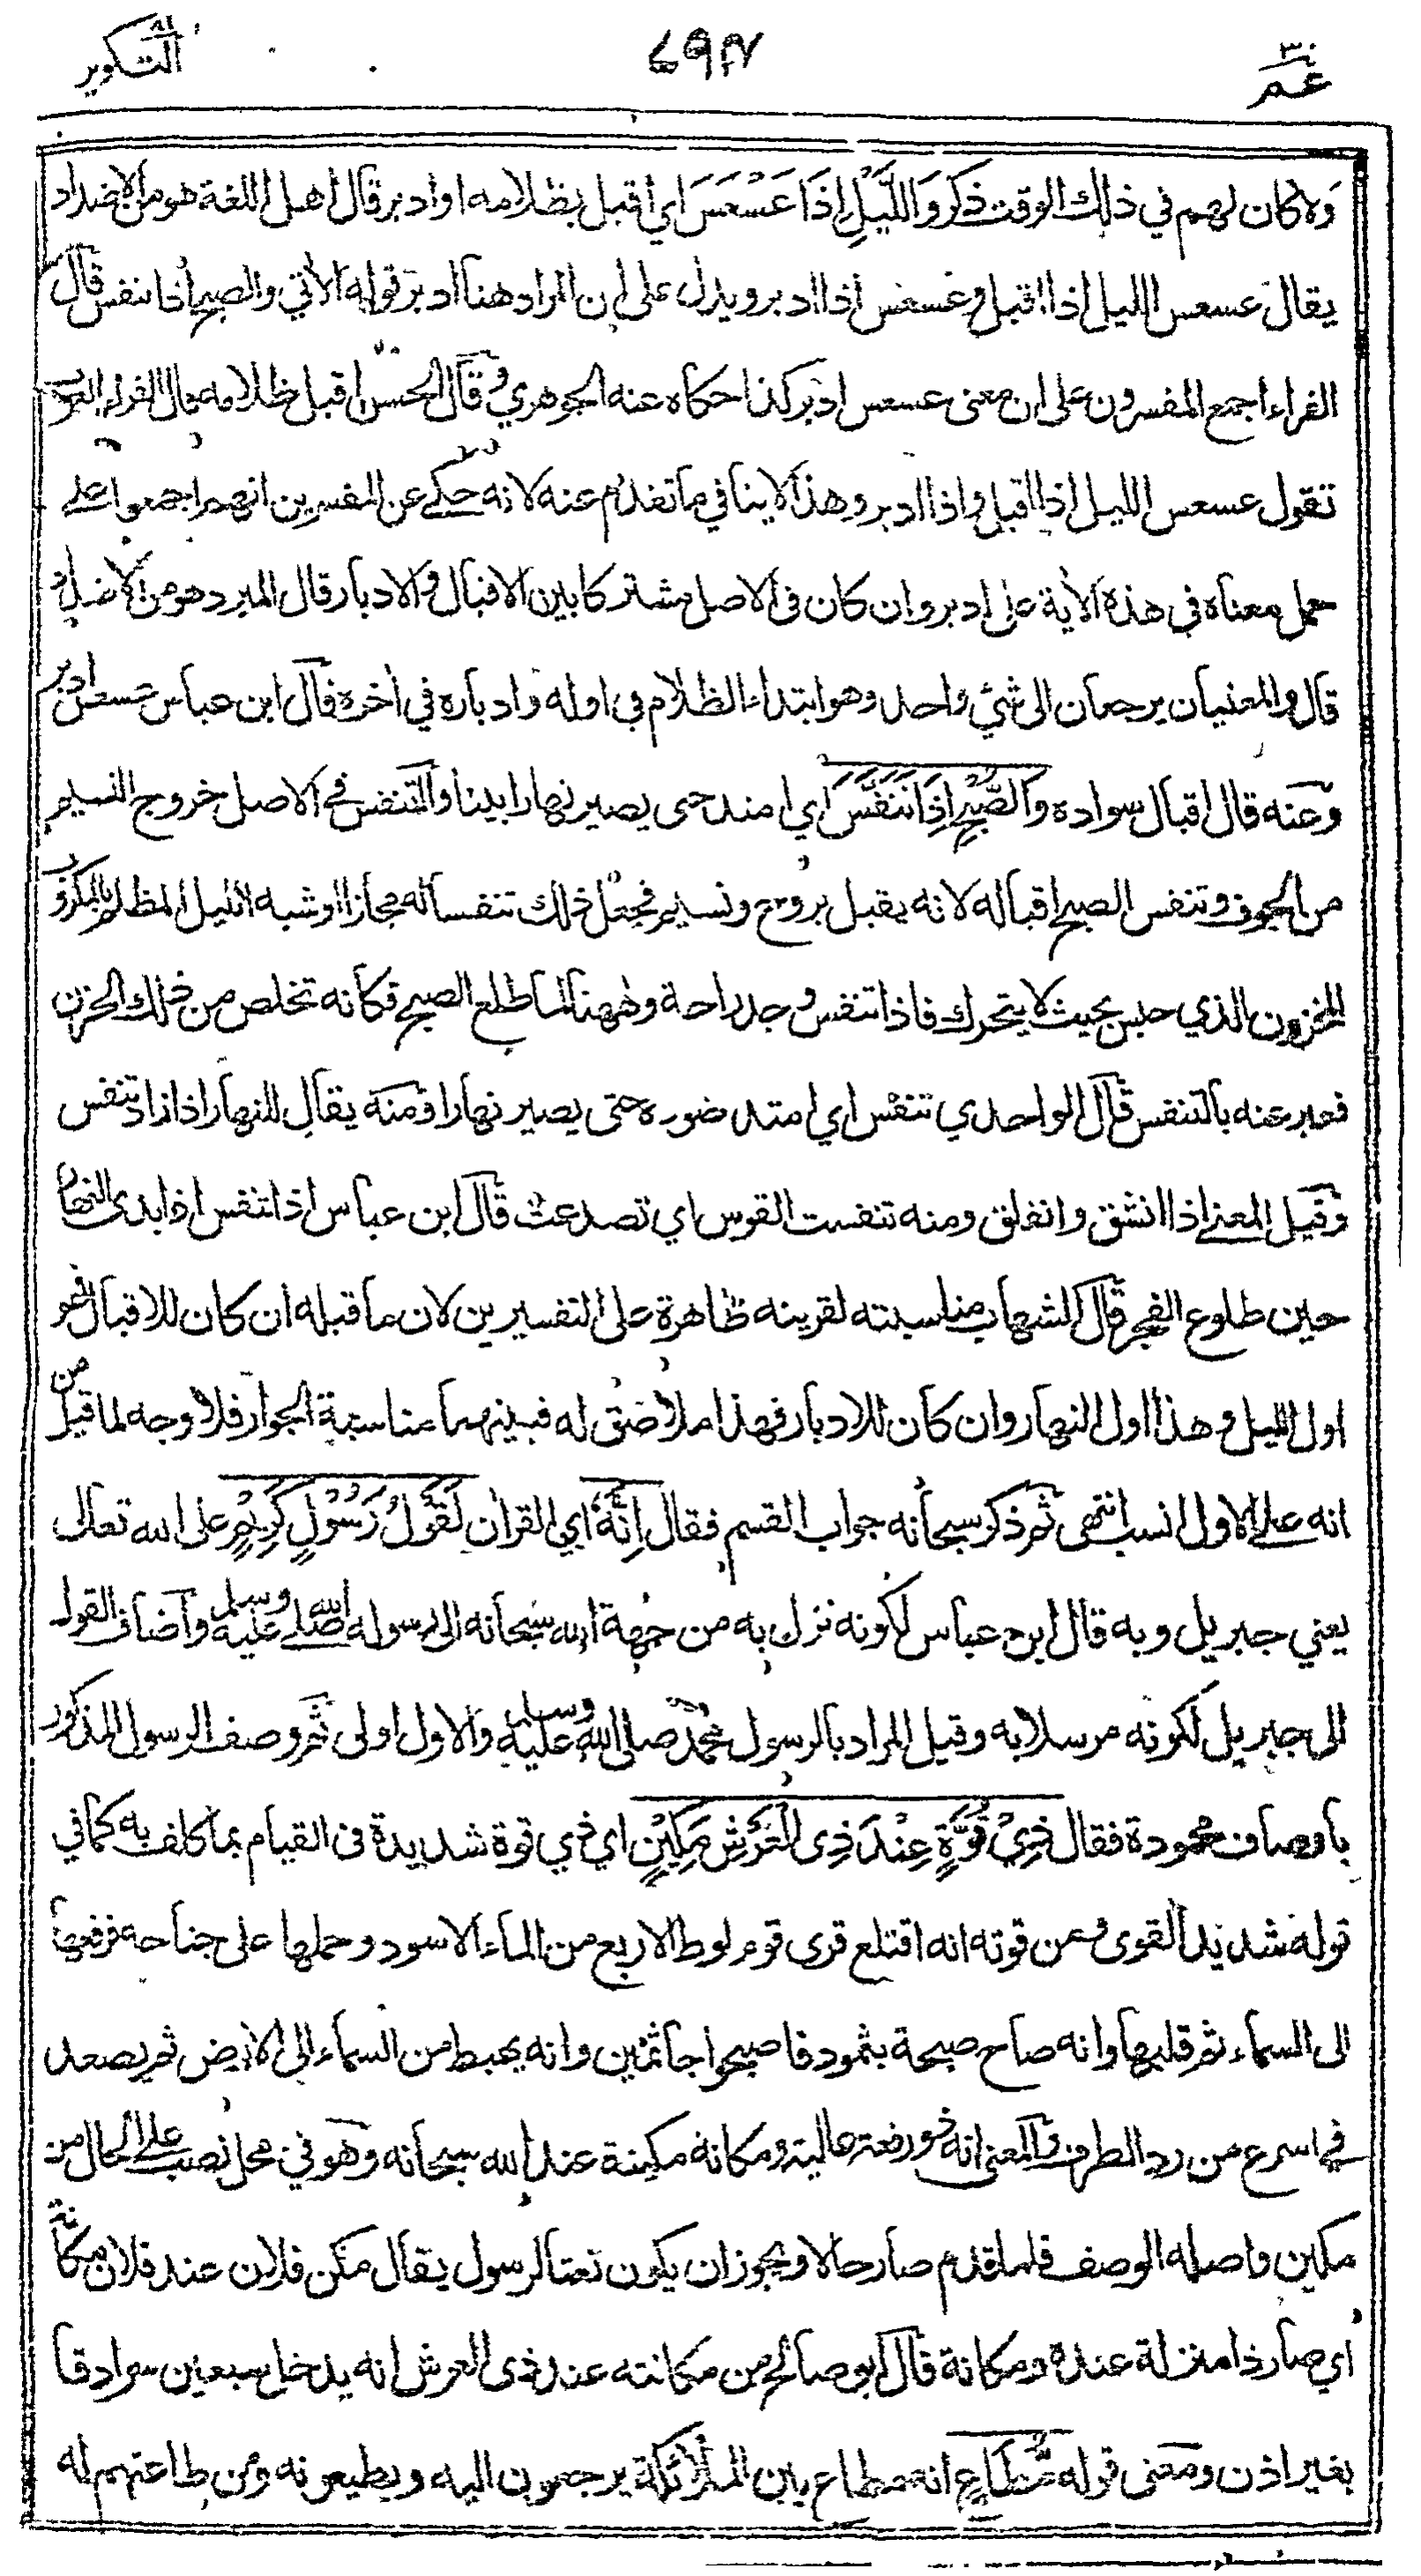 عم ٣٠
التكوير ٨١
ولا كان لهم في ذلك الوقت ذكر وَاللَّيْلِ اِذَا عَسْعَسَ اي اقبل بظلامه او ادبر قال اهل اللغة هو من الاضداد
يقال عسعس الليل اذا اقبل وعسعس اذا ادبر ويدل على ان المراد هنا ادبر قوله الأتي والصبح اذا تنفس قال
الفراء اجمع المفسرون على ان معنى عسعس ادبر كذا حكاه عنه الجوهري وقال الحسن اقبل ظلامه قال الفراء العرب
تقول عسعس الليل اذا اقبل واذا ادبر وهذا لا ينافي ما تقدم عنه لانه حكى عن المفسرين انهم اجمعوا على
حمل معناه في هذه الأية على ادبر وان كان في الاصل مشتركا بين الاقبال والادبار قال المبرد هو من الاضداد
قال والمعنيان يرجعان الى شئ واحد وهو ابتداء الظلام في اوله وادباره في أخره قال ابن عباس عسعس ادبر
وعنه قال اقبال سواده وَالصُّبْحِ اِذَا تَنَفَّسَ اي امتد حتى يصير نهارا بينا والتنفس في الاصل خروج النسيم
من الجوف وتنفس الصبح اقباله لانه يقبل بروح ونسيم فجعل ذلك تنفسا له مجازا او شبه الليل المظلم بالمكروب
المحزون الذي حبس بحيث لا يتحرك فاذا تنفس وجد راحة وههنا لما طلع الصبح فكأنه تخلص من ذلك الحزن
فعبر عنه بالتنفس قال الواحدي تنفس اي امتد ضوءه حتى يصير نهارا ومنه يقال للنهار اذا زاد تنفس
وقيل المعنى اذا انشق وانفلق ومنه تنفست القوس اي تصدعت قال ابن عباس اذا تنفس اذا بدى النهار
حين طلوع الفجر قال الشهاب مناسبته لقرينه ظاهرة على التفسيرين لان ما قبله ان كان للاقبال فهو
اول الليل وهذا اول النهار وان كان للادبار فهذا ملاصق له فبينهما مناسبة الجوار فلا وجه لما قيل من
انه على الاول انسب انتهى ثم ذكر سبحانه جواب القسم فقال اِنَّهٗ اي القرأن لَقَوْلُ رَسُوْلٍ كَرِيْمٍ على الله تعالى
يعني جبريل وبه قال ابن عباس لكونه نزل به من جهة الله سبحانه الى رسوله صلى الله عليه وسلم واضاف القول
الى جبريل لكونه مرسلا به وقيل المراد بالرسول محمد صلى الله عليه وسلم والاول اولى ثم وصف الرسول المذكور
باوصاف محمودة فقال ذِيْ قُوَّةٍ عِنْدَ ذِى الْعَرْشِ مَكِيْنٍ اي ذي قوة شديدة فى القيام بما كلف به كما في
قوله شديد القوى ومن قوته انه اقتلع قرى قوم لوط الاربع من الماء الاسود وحملها على جناحه فرفعها
الى السماء ثم قلبها وانه صاح صيحة بثمود فاصبحوا جاثمين وانه يهبط من السماء الى الارض ثم يصعد
في اسرع من رد الطرف والمعنى انه ذو رفعة عالية ومكانة مكينة عند الله سبحانه وهو في محل نصب على الحال من
مكين واصله الوصف فلما قدم صار حالا ويجوز ان يكون نعتا لرسول يقال مكن فلان عند فلان مكانة
اي صار ذا منزلة عنده ومكانة قال ابو صالح من مكانته عند ذى العرش انه يدخل سبعين سرادقا
بغير اذن ومعنى قوله مُّطَاعٍ انه مطاع بين الملائكة يرجعون اليه ويطيعونه ومن طاعتهم له